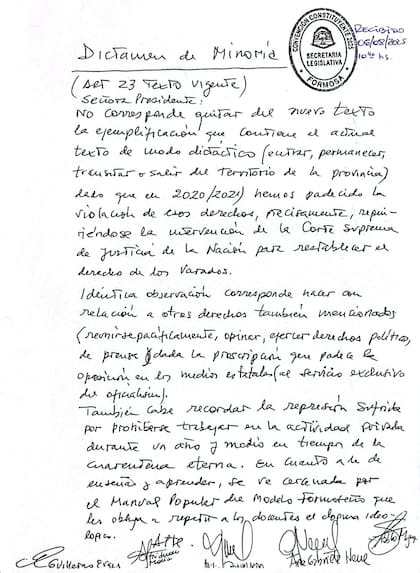 CONVENCIÓN CONSTITUYENTE 2025
SECRETARIA
LEGISLATIVA
FORMOSA
RECIBIDO
06/08/2025
10:00 hs.
Dictamen de Minoría
(ART 23 TEXTO VIGENTE)
Señora Presidente:
No corresponde quitar del nuevo texto
la ejemplificación que contiene el actual
texto de modo didáctico (entrar, permanecer,
transitar o salir del territorio de la provincia)
dado que en 2020/2021) hemos padecido la
violación de esos derechos, precisamente, requi-
riéndose la intervención de la Corte Suprema
de Justicia de la Nación para restablecer el
derecho de los varados.
Idéntica observación corresponde hacer con
relación a otros derechos también mencionados
(reunirse pacíficamente, opinar, ejercer derechos políticos,
de prensa y dada la proscripción que padece la
oposición en los medios estatales (al servicio exclusivo
del oficialismo).
También cabe recordar la represión sufrida
por prohibirse trabajar en la actividad privada
durante un año y medio en tiempo de la
cuarentena eterna. En cuanto a lo de
enseñar y aprender, se ve cercenada por
el Manual Popular del Modelo Formoseño que
les obliga a repetir a los docentes el dogma ideo-
lógico.
Guillermo Evans